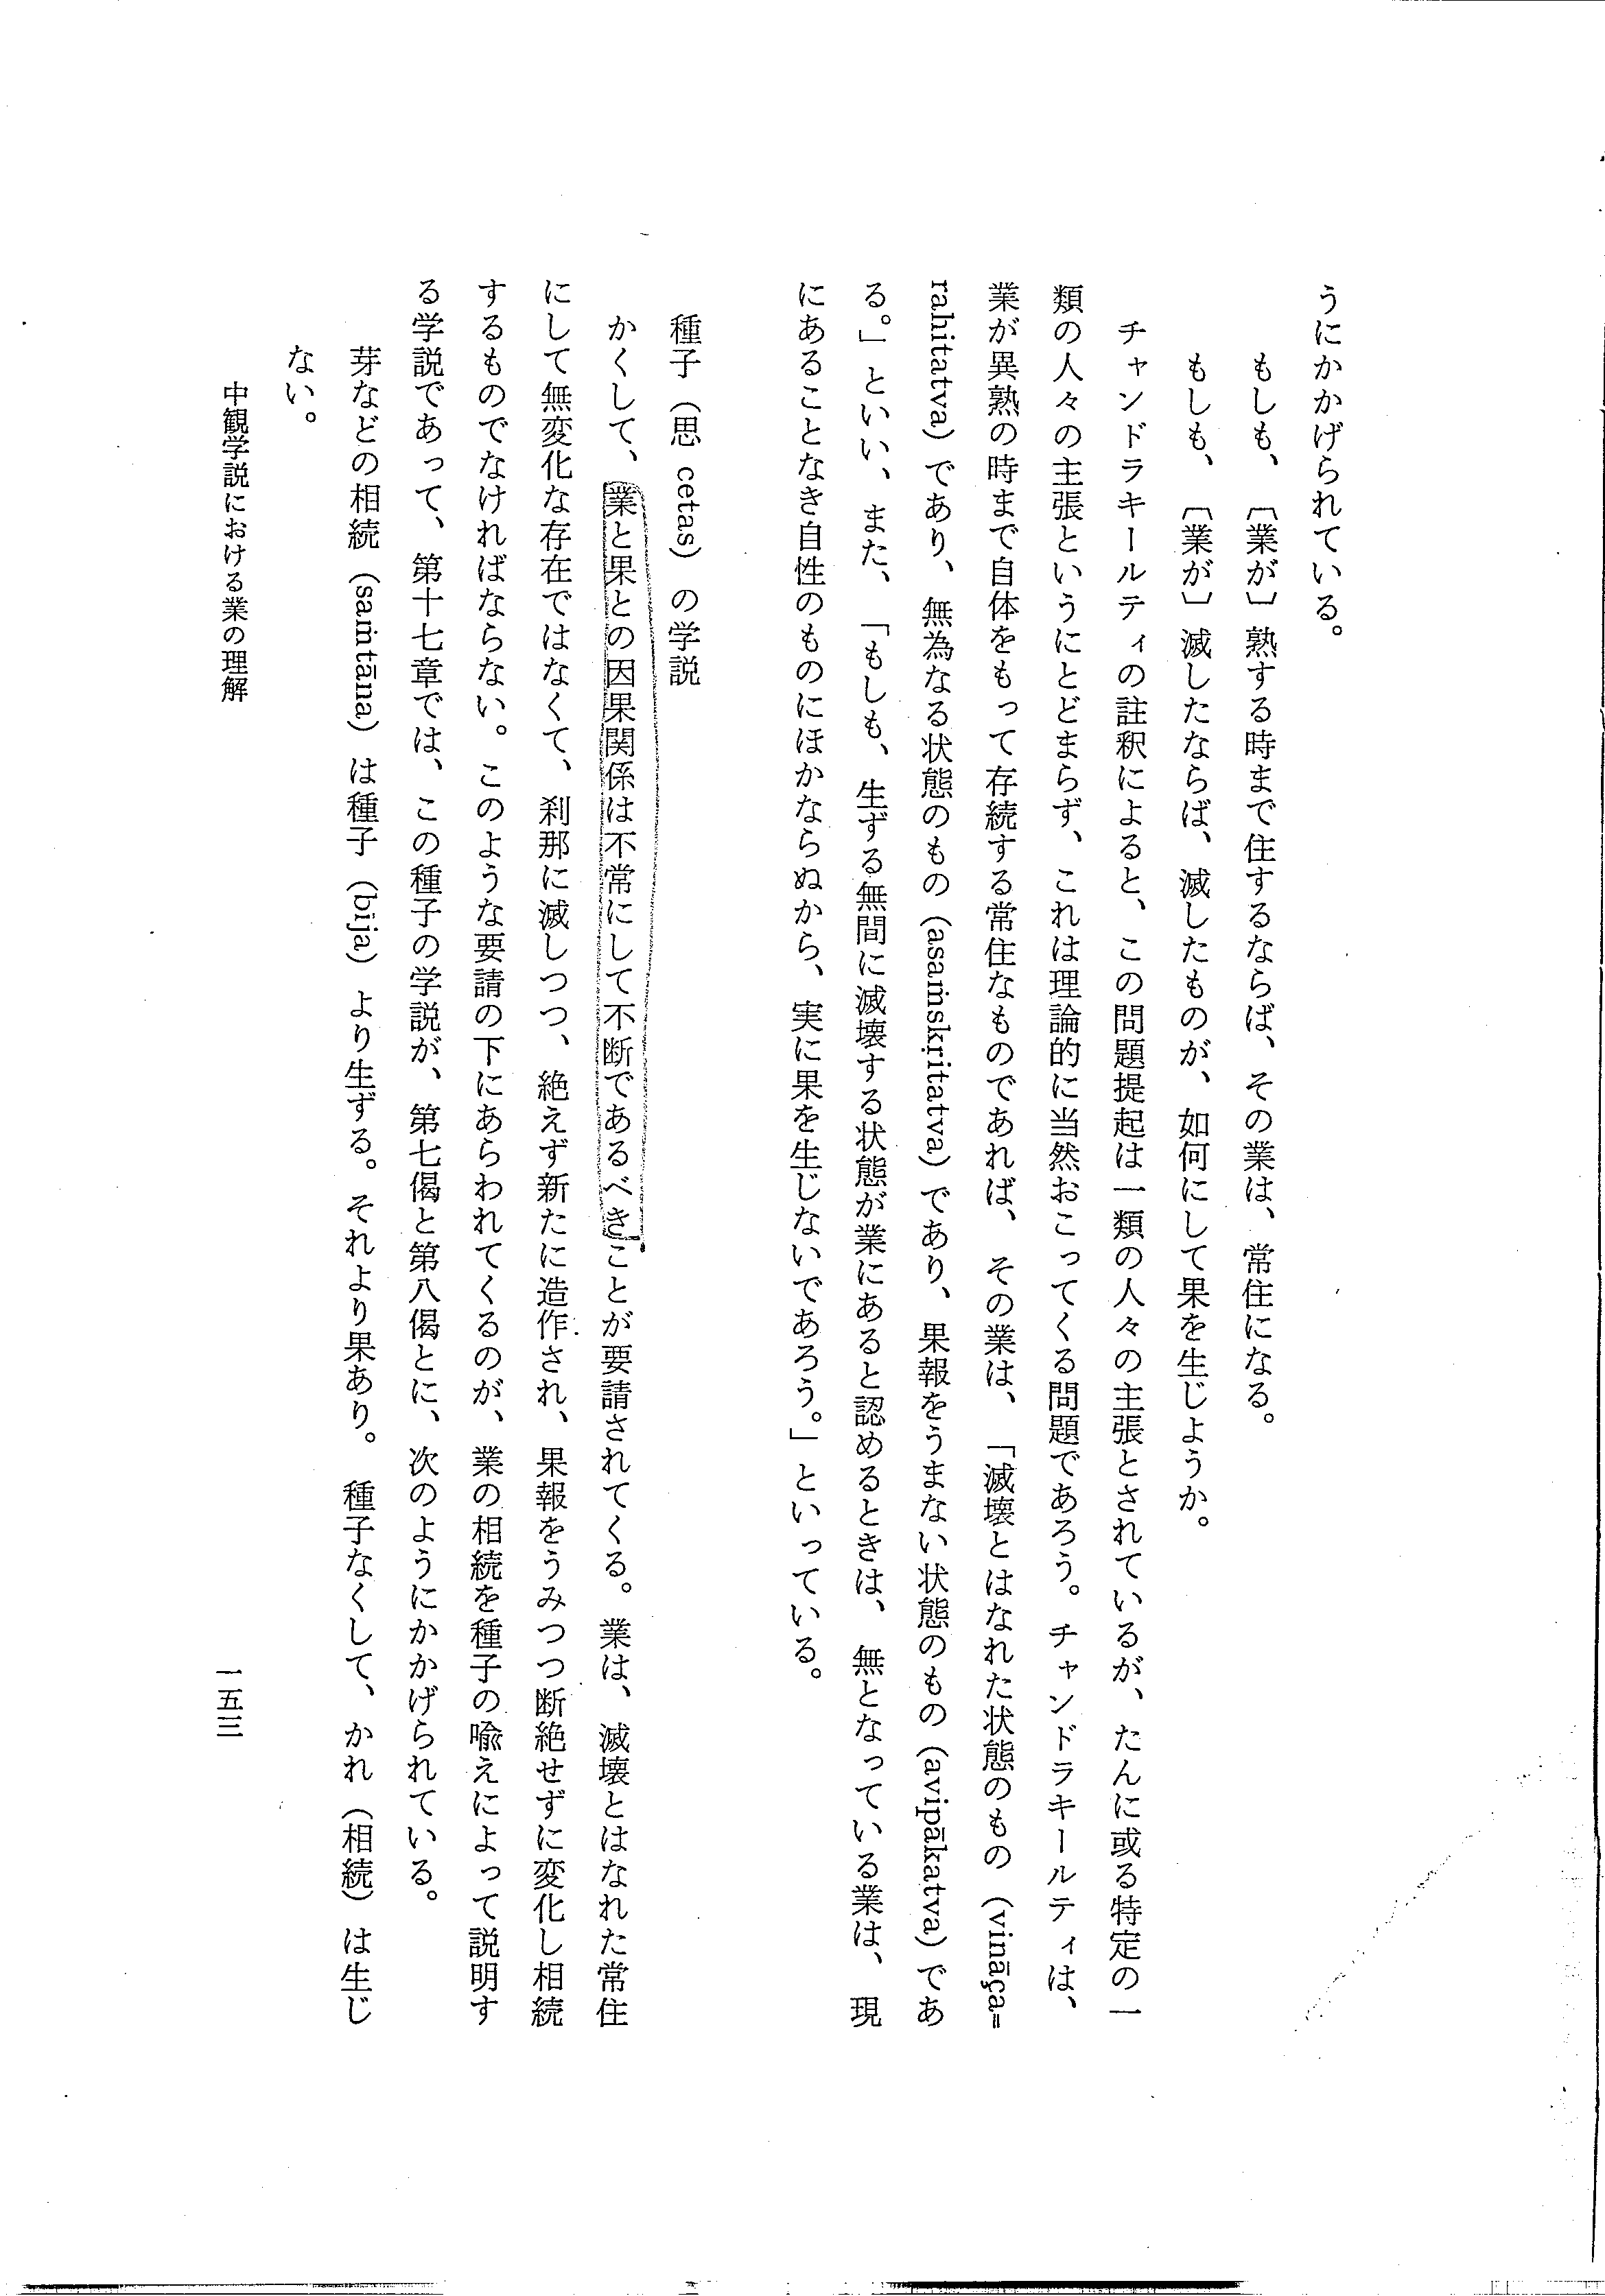 うにかかげられている。
もしも、〔業が〕熟する時まで住するならば、その業は、常住になる。
もしも、〔業が〕滅したならば、滅したものが、如何にして果を生じようか。
チャンドラキールティの註釈によると、この問題提起は一類の人々の主張とされているが、たんに或る特定の一
類の人々の主張というにとどまらず、これは理論的に当然おこってくる問題であろう。チャンドラキールティは、
業が異熟の時まで自体をもって存続する常住なものであれば、その業は、「滅壊とはなれた状態のもの（vināça=
rahitatva）であり、無為なる状態のもの（asaṁskṛitatva）であり、果報をうまない状態のもの（avipākatva）であ
る。」といい、また、「もしも、生ずる無間に滅壊する状態が業にあると認めるときは、無となっている業は、現
にあることなき自性のものにほかならぬから、実に果を生じないであろう。」といっている。
種子（思 cetas）の学説
かくして、業と果との因果関係は不常にして不断であるべきことが要請されてくる。業は、滅壊とはなれた常住
にして無変化な存在ではなくて、刹那に滅しつつ、絶えず新たに造作され、果報をうみつつ断絶せずに変化し相続
するものでなければならない。このような要請の下にあらわれてくるのが、業の相続を種子の喩えによって説明す
る学説であって、第十七章では、この種子の学説が、第七偈と第八偈とに、次のようにかかげられている。
芽などの相続（saṁtāna）は種子（bīja）より生ずる。それより果あり。種子なくして、かれ（相続）は生じ
ない。
中観学説における業の理解
一五三